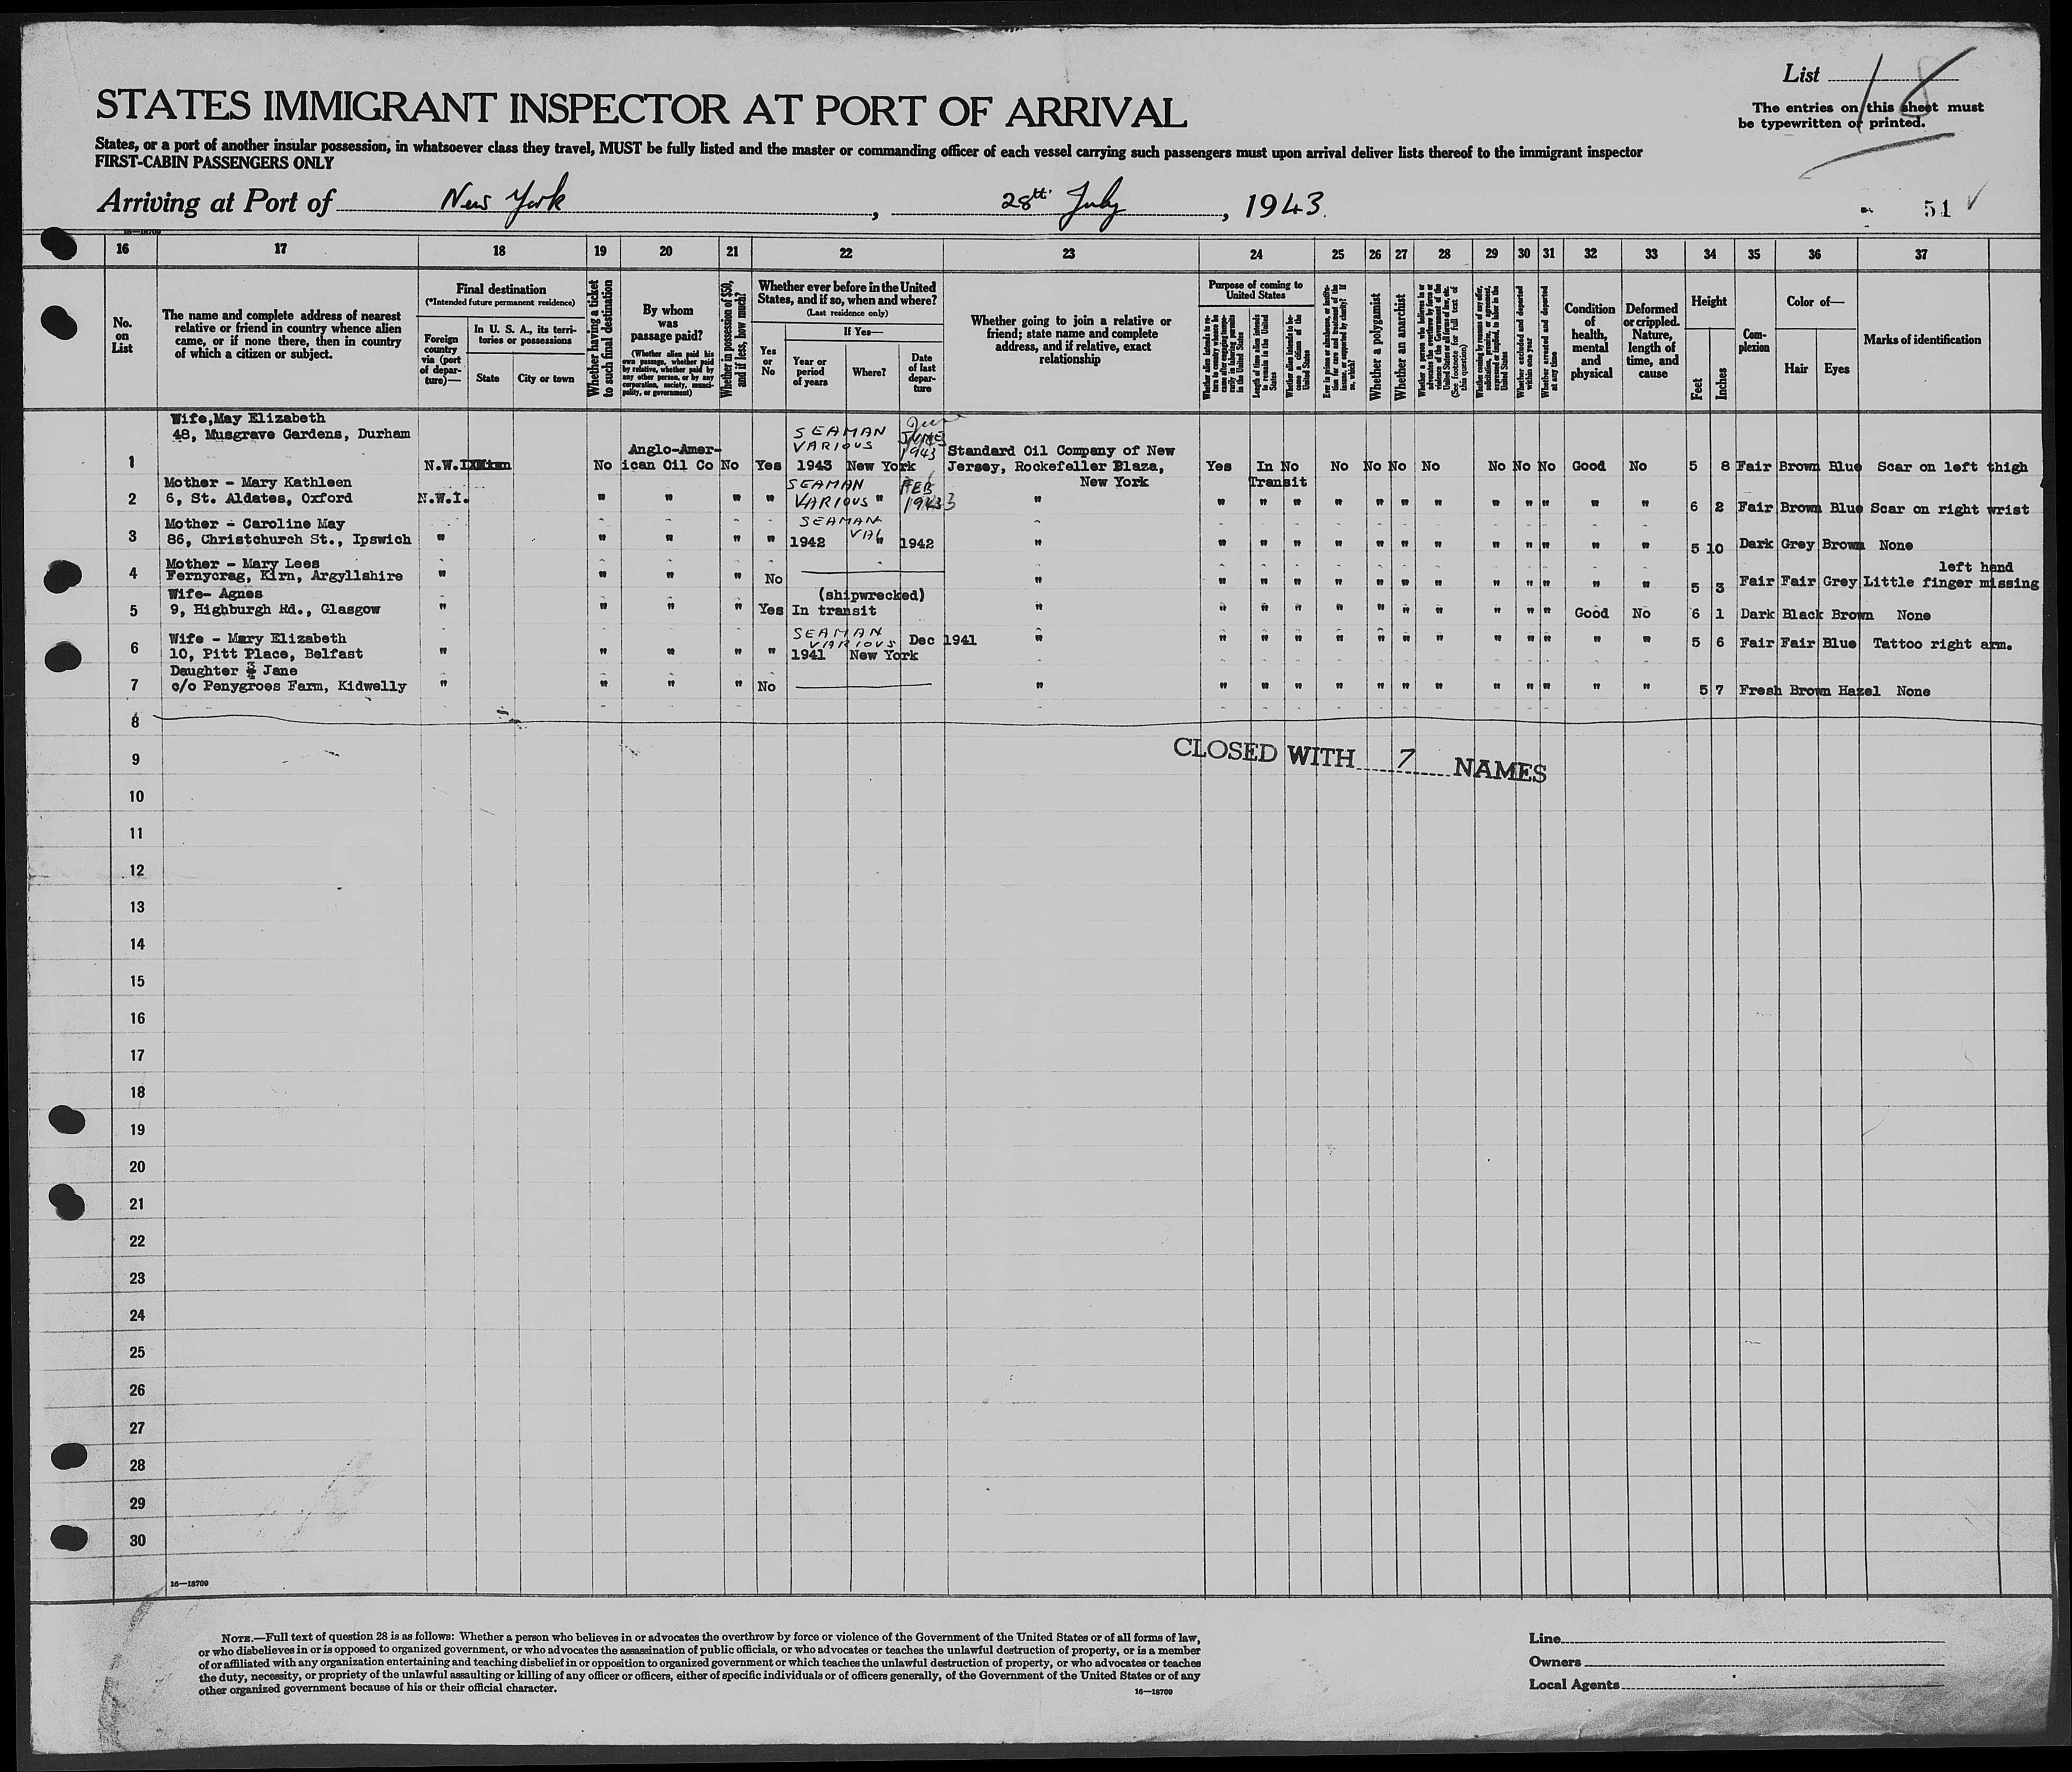 List 18
The entries on this sheet must
be typewritten or printed.
STATES IMMIGRANT INSPECTOR AT PORT OF ARRIVAL
States, or a port of another insular possession, in whatsoever class they travel, MUST be fully listed and the master or commanding officer of each vessel carrying such passengers must upon arrival deliver lists thereof to the immigrant inspector
FIRST-CABIN PASSENGERS ONLY
Arriving at Port of New York, 28th July, 1943.
51
16 17 18 19 20 21 22 23 24 25 26 27 28 29 30 31 32 33 34 35 36 37
No. on List
The name and complete address of nearest
relative or friend in country whence alien
came, or if none there, then in country
of which a citizen or subject.
Final destination
(*Intended future permanent residence)
Foreign country via (port of departure)—
In U. S. A., its territories or possessions
State City or town
Whether having a ticket to such final destination
By whom was passage paid?
(Whether alien paid his own passage, whether paid by relative, whether paid by any other person, or by any corporation, society, municipality, or government)
Whether in possession of $50, and if less, how much?
Whether ever before in the United
States, and if so, when and where?
(Last residence only)
Yes or No
If Yes—
Year or period of years
Where?
Date of last departure
Whether going to join a relative or
friend; state name and complete
address, and if relative, exact
relationship
Purpose of coming to
United States
Length of time alien intends to remain in the United States
Whether alien intends to become a citizen of the United States
Whether a polygamist
Whether an anarchist
Whether excluded and deported within one year
Whether arrested and deported at any time
Condition of health, mental and physical
Deformed or crippled. Nature, length of time, and cause
Height
Feet Inches
Complexion
Color of—
Hair Eyes
Marks of identification
Wife,May Elizabeth
48, Musgrave Gardens, Durham
1 N.W.I. No Anglo-American Oil Co No Yes SEAMAN VARIOUS 1943 New York JUNE 1943 Standard Oil Company of New Jersey, Rockefeller Plaza, New York Yes In Transit No No No No No No No No Good No 5 8 Fair Brown Blue Scar on left thigh
Mother - Mary Kathleen
2 6, St. Aldates, Oxford N.W.I. " " " " SEAMAN VARIOUS " FEB 1943 " " " " " " " " " " " " " 6 2 Fair Brown Blue Scar on right wrist
Mother - Caroline May
3 86, Christchurch St., Ipswich " " " " " SEAMAN 1942 " 1942 " " " " " " " " " " " " " 5 10 Dark Grey Brown None
Mother - Mary Lees
4 Fernycrag, Kirn, Argyllshire " " " " No " " " " " " " " " " " " " 5 3 Fair Fair Grey Little finger missing left hand
Wife- Agnes
5 9, Highburgh Rd., Glasgow " " " " Yes In transit (shipwrecked) " " " " " " " " " " " Good No 6 1 Dark Black Brown None
Wife - Mary Elizabeth
6 10, Pitt Place, Belfast " " " " " SEAMAN VARIOUS 1941 New York Dec 1941 " " " " " " " " " " " " " 5 6 Fair Fair Blue Tattoo right arm.
Daughter - Jane
7 c/o Penygroes Farm, Kidwelly " " " " No " " " " " " " " " " " " " 5 7 Fresh Brown Hazel None
8
CLOSED WITH 7 NAMES
9
10
11
12
13
14
15
16
17
18
19
20
21
22
23
24
25
26
27
28
29
30
16—18709
NOTE.—Full text of question 28 is as follows: Whether a person who believes in or advocates the overthrow by force or violence of the Government of the United States or of all forms of law,
or who disbelieves in or is opposed to organized government, or who advocates the assassination of public officials, or who advocates or teaches the unlawful destruction of property, or is a member
of or affiliated with any organization entertaining and teaching disbelief in or opposition to organized government or which teaches the unlawful destruction of property, or who advocates or teaches
the duty, necessity, or propriety of the unlawful assaulting or killing of any officer or officers, either of specific individuals or of officers generally, of the Government of the United States or of any
other organized government because of his or their official character.
16—18709
Line
Owners
Local Agents